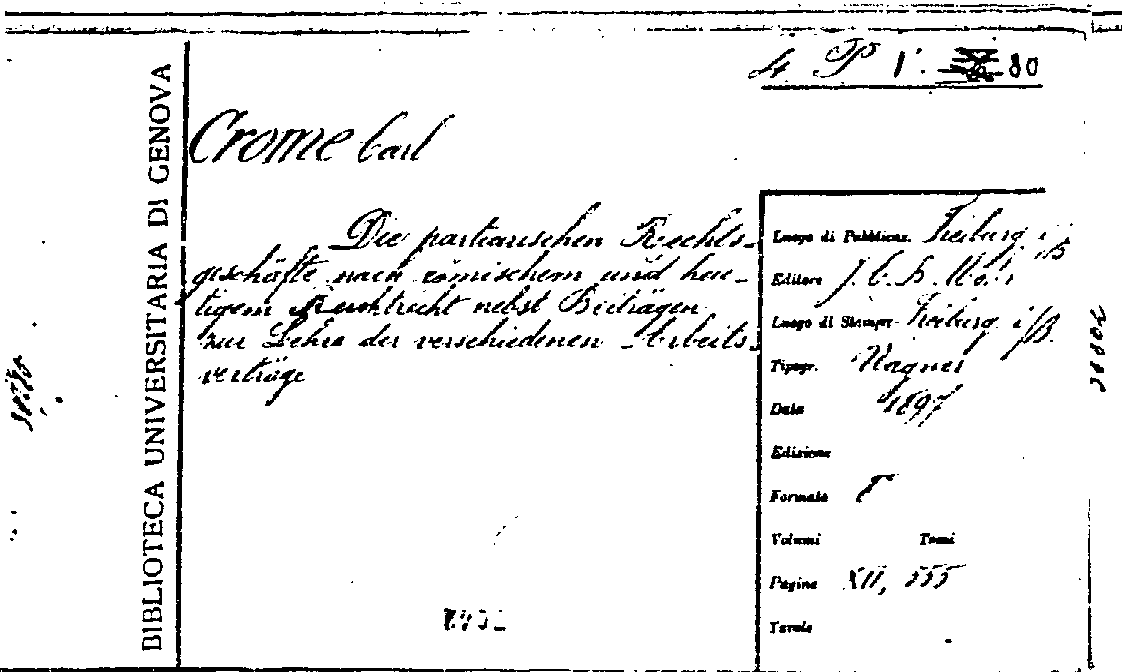 4 P V. 80
BIBLIOTECA UNIVERSITARIA DI GENOVA
Crome Carl
Die partiarischen Rechts-
geschäfte nach römischem und heu-
tigem nebst Beiträgen
zur Lehre der verschiedenen Arbeits-
verträge
Luogo di Pubblicaz. Freiburg i/B
Editore J. C. B. Mohr
Luogo di Stampa Freiburg i/B.
Tipogr. Wagner
Data 1897
Edizione
Formato 8°
Volumi Tomi
Pagine XII, 555
Tavole